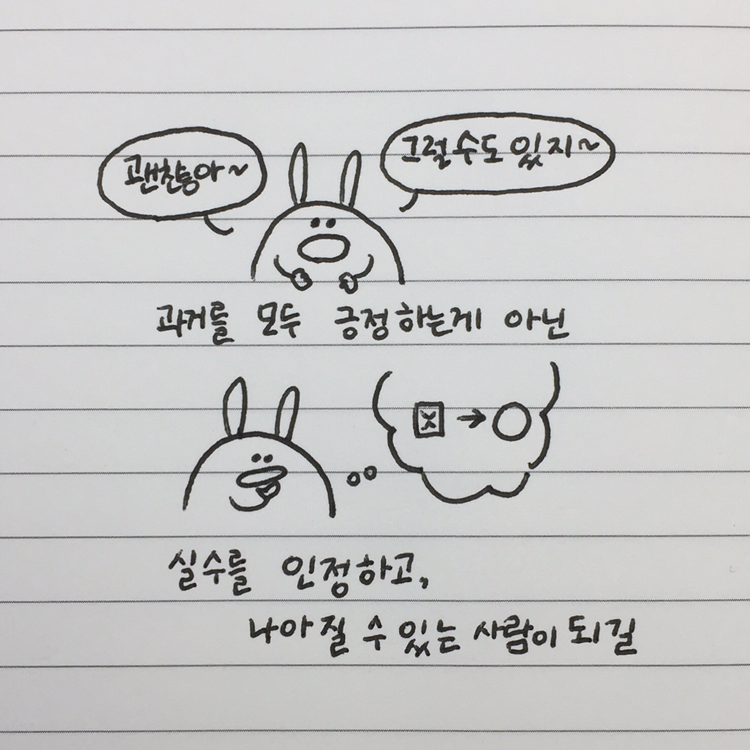 괜찮아~
그럴 수도 있지~
과거를 모두 긍정하는게 아닌
실수를 인정하고,
나아질 수 있는 사람이 되길